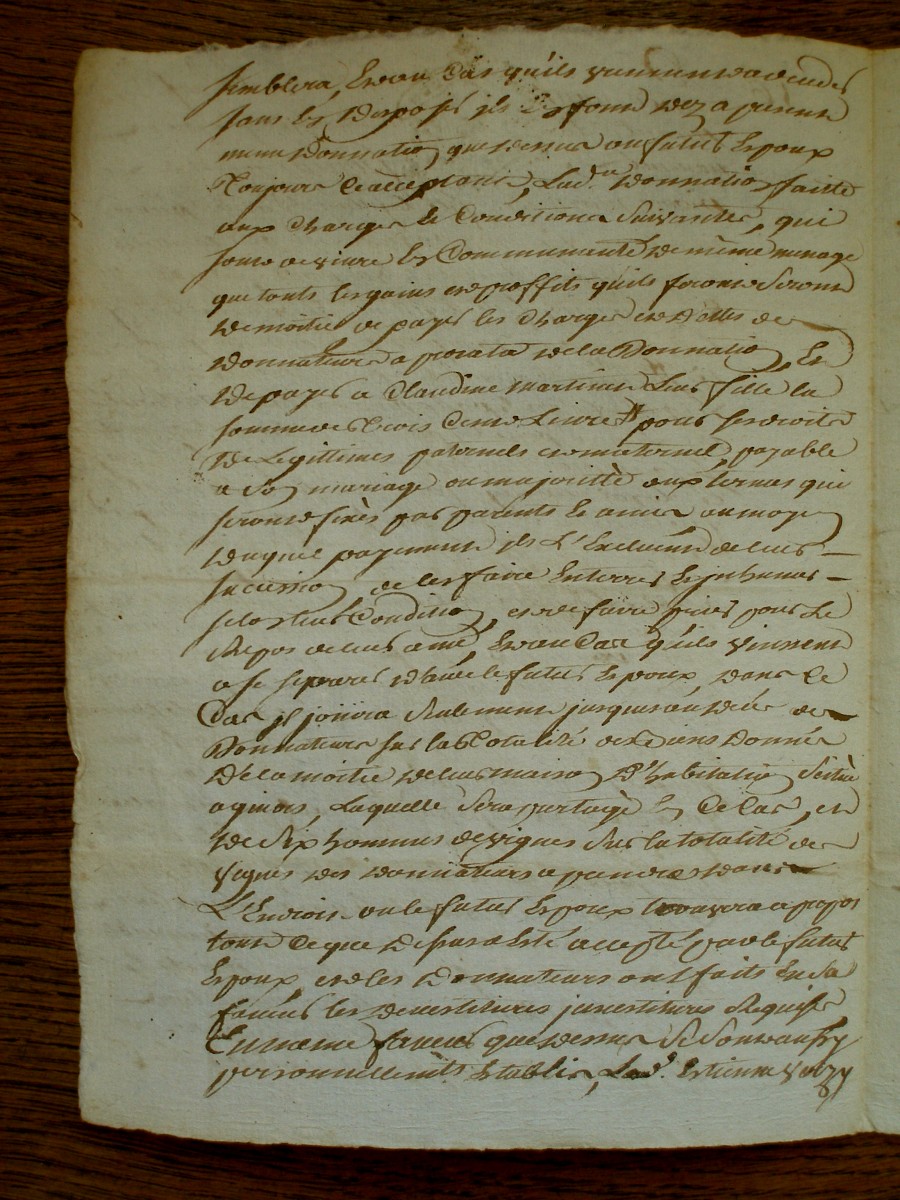 semblera, et au cas qu'ils vinrent a decedes
sans en disposer ils en font dez a present
meme Donnation que dessus au futur Epoux
Toujours acceptant, Lad.e Donnation faitte
aux charges et Conditions Suivantes, qui
sont de vivre en Communauté de même menage
que touts les gains et proffits qu'ils feront Seront
de moitié de payer les charges et dettes des
Donnateurs a prorata de la Donnation, Et
de payer a Claudine martinet Leur fille la
somme de trois Cent Livres pour ses droits
de Legittimes paternels et maternels, payable
a Son mariage ou majorité aux termes qui
seront fixés par parents et amis au moyen
duquel payement ils L'Excluent de leur
succession, de les faire Enterrer et inhumer
selon leur Condition, et de faire prier pour Le
Repos de leur ame, Et au Cas qu'ils vinssent
a se separer d'avec le futur Epoux, dans ce
Cas il jouira seulement jusques au decés des
Donnateurs sur la Totalité des Biens Donnés
De la moitié de leur maison D'habitation Scitué
a ginois, Laquelle sera partagé en ce Cas, et
de Six hommes de vignes sur la totalité des
vignes des donnateurs a prendre dans
L'Endroit ou le futur Epoux trouvera a propos
tout Ce que dessus a Eté accepté par le futur
Epoux, et les Donnateurs ont faits En sa
faveur les devestitures investitures Requises
En meme faveur que dessus Se Sont aussy
personnellemt Etablis, Led. Estienne